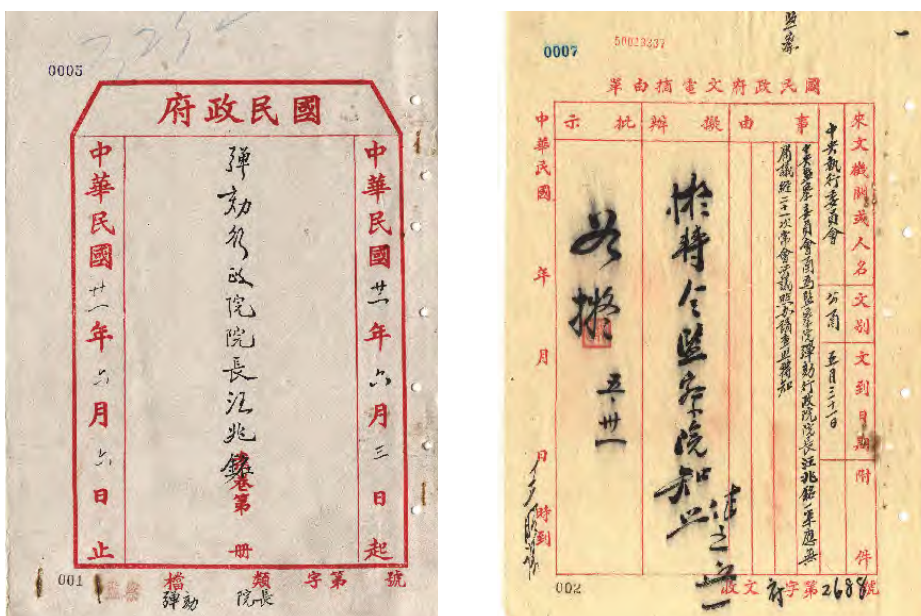 0005
國民政府
中華民國廿一年六月三日起
彈劾行政院院長汪兆銘
卷第 冊
中華民國廿一年六月六日止
001
檔 類 字第 號
彈劾 院長
監察
0007
50023337
國民政府文電摘由單
來文機關或人名 文別 文到日期 附件
中央執行委員會 公函 五月三十一日
事由
中央監察委員會函為監察院彈劾行政院院長汪兆銘一案應無
庸議經二十一次常會決議照辦請查照轉知
擬辦
擬轉令監察院知照
批示
如擬
五 卅一
中華民國 年 月 日 時到
002
收文府字第2688號